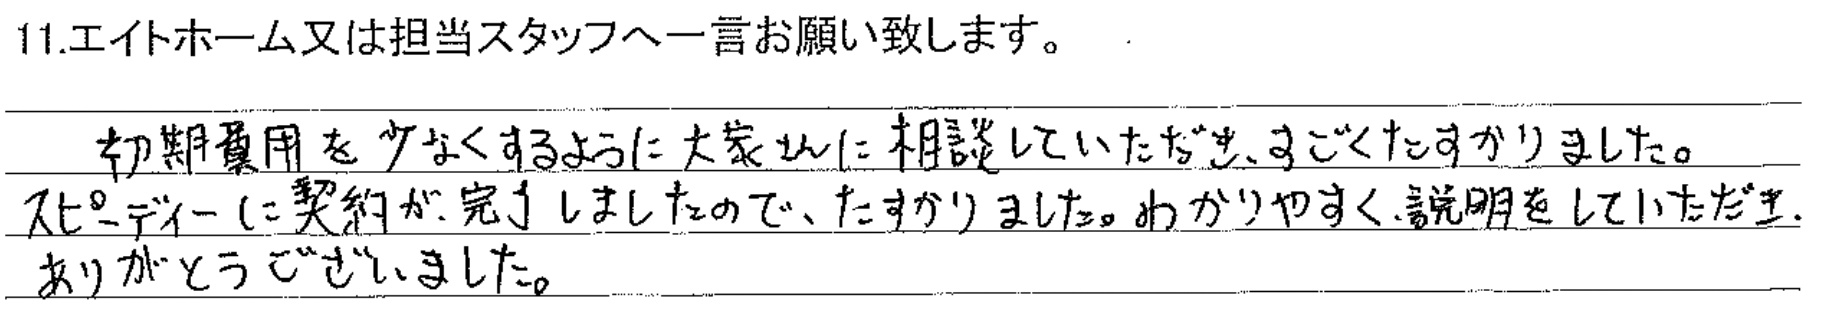 11.エイトホーム又は担当スタッフへ一言お願い致します。
初期費用を少なくするように大家さんに相談していただき、すごくたすかりました。
スピーディーに契約が完了しましたので、たすかりました。わかりやすく説明をしていただき、
ありがとうございました。